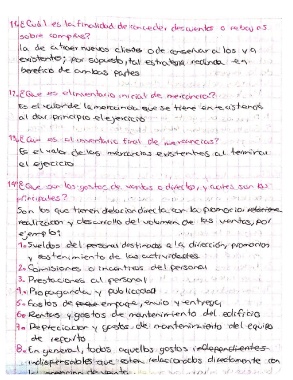 11.¿Cuál es la finalidad de conceder descuentos o rebajas
sobre compras?
la de atraer nuevos clientes o de conservar a los ya
existente; por supuesto, tal estrategia redunda en
beneficio de ambas partes
12.¿Que es el inventario inicial de mercancía?
Es el valor de la mercancía que se tiene en existencia
al dar principio el ejercicio
13.¿Cuál es el inventario final de mercancías?
Es el valor de las mercancías existentes al terminar
el ejercicio
14.¿Que son los gastos de ventas o directos, y cuales son los
principales?
Son los que tienen relacion directa con la promoción
realización y desarrollo del volumen de las ventas, por
ejemplo:
1.- Sueldos del personal destinado a la dirección, promoción
y sostenimiento de las actividades
2.- Comisiones o incentivos del personal
3.- Prestaciones al personal
4.- Propaganda y publicidad
5.- Gastos de empaque, envio y entrega,
6.- Rentas y gastos de mantenimiento del edificio
7.- Depreciacion y gastos de mantenimiento del equipo
de reparto
8.- En general, todos aquellos gastos independientes
indispensables que esten relacionados directamente con